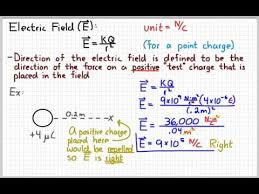 Electric Field (E⃗):
unit = N/C
E⃗ = KQ/r²
(for a point charge)
- Direction of the electric field is defined to be the
direction of the force on a positive "test" charge that is
placed in the field
Ex:
0.2m
+4μC
A positive charge
placed here
would be repelled
so E⃗ is right
E⃗ = KQ/r²
E⃗ = 9×10⁹ N·m²/C² (4×10⁻⁶ C)/(.2m)²
E⃗ = 36,000 N·m²/C/.04 m²
E⃗ = 9 × 10⁵ N/C Right